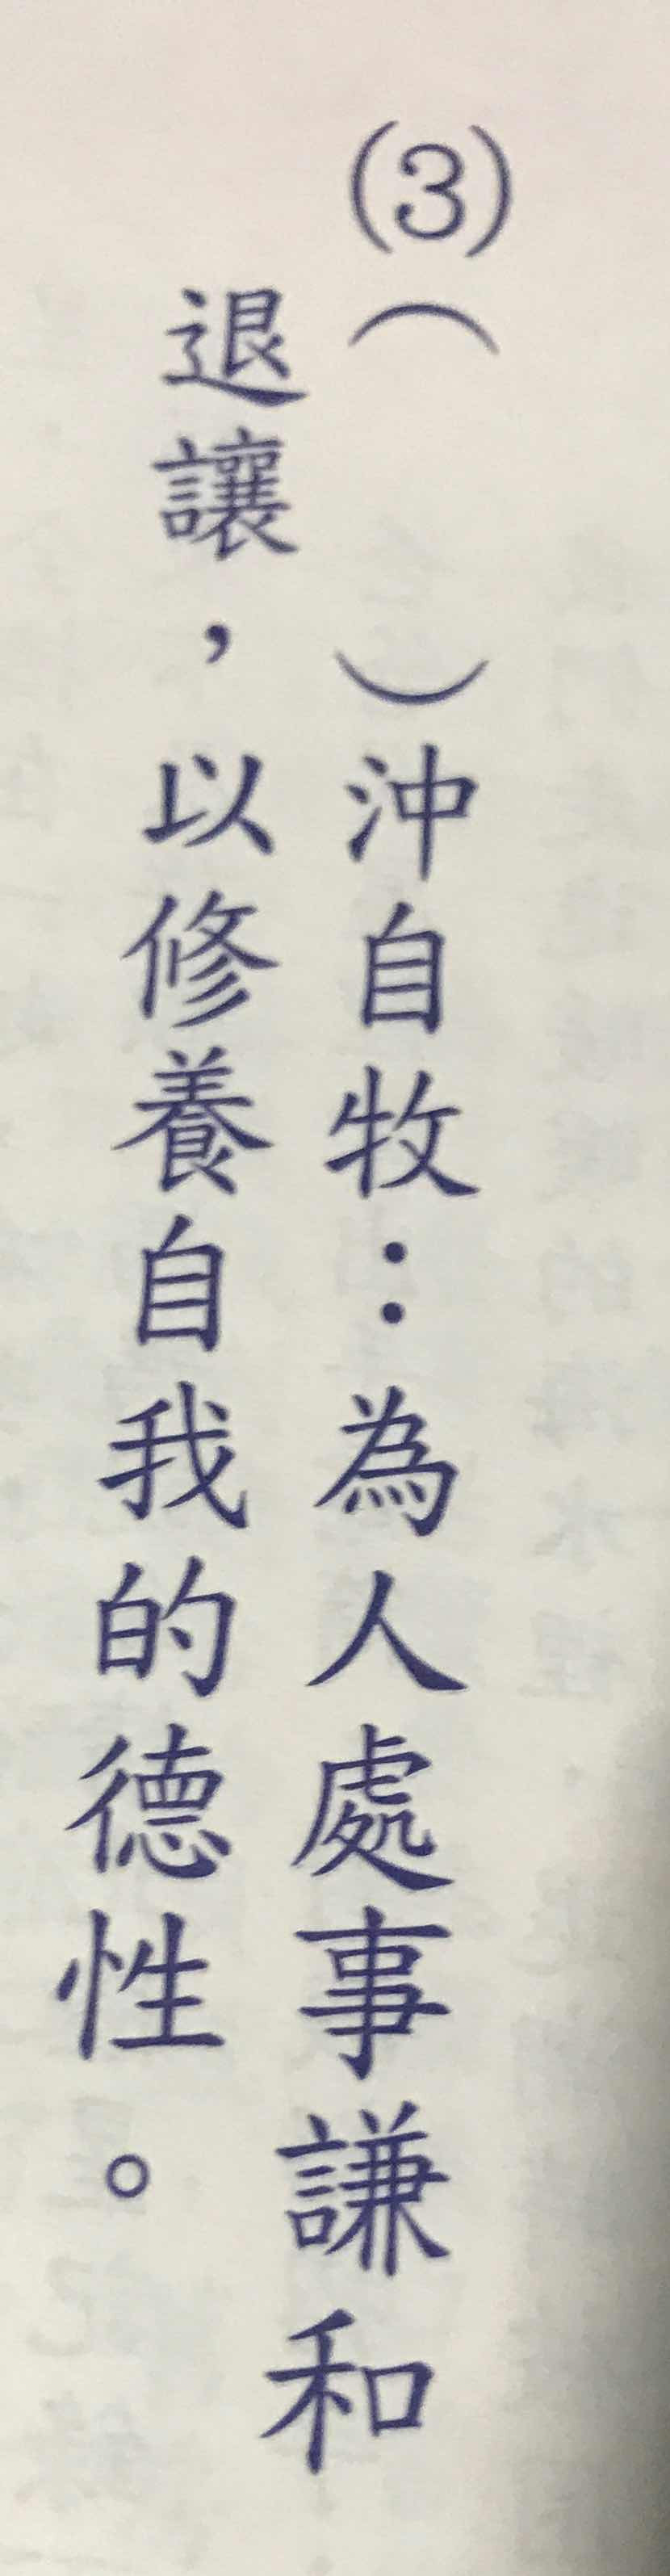 (3)（　　）沖自牧：為人處事謙和
退讓，以修養自我的德性。